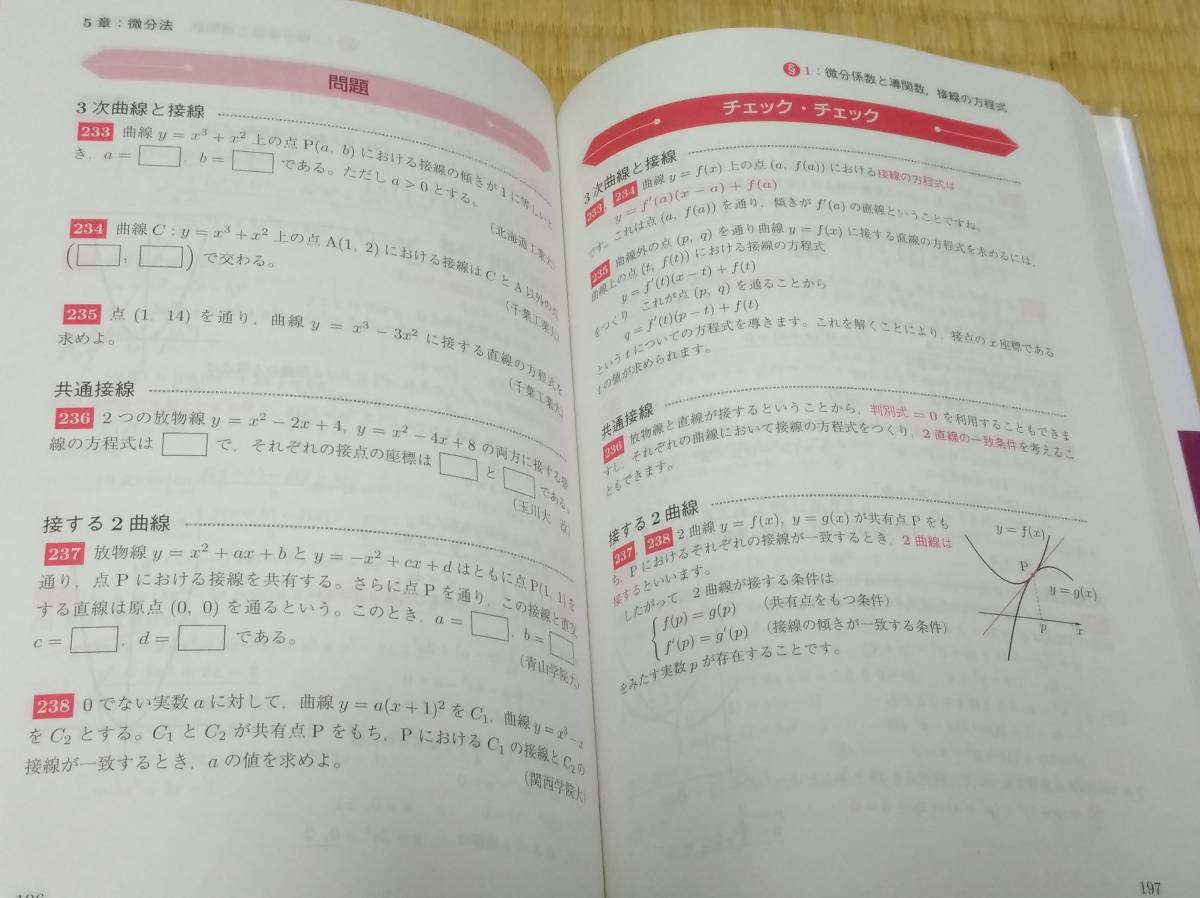 5章：微分法
問題
3次曲線と接線
233 曲線 y = x³ + x² 上の点 P(a, b) における接線の傾きが 1 に等しいと
き，a = □，b = □ である。ただし a > 0 とする。
（北海道工業大）
234 曲線 C : y = x³ + x² 上の点 A(1, 2) における接線は C と A 以外の点
(□, □) で交わる。
（千葉工業大）
235 点 (1, 14) を通り，曲線 y = x³ − 3x² に接する直線の方程式を
求めよ。
（千葉工業大）
共通接線
236 2つの放物線 y = x² − 2x + 4, y = x² − 4x + 8 の両方に接する接
線の方程式は □ で，それぞれの接点の座標は □ と □ である。
（玉川大 改）
接する2曲線
237 放物線 y = x² + ax + b と y = −x² + cx + d はともに点 P(1, 1) を
通り，点 P における接線を共有する。さらに点 P を通り，この接線と直交
する直線は原点 (0, 0) を通るという。このとき，a = □，b = □
c = □，d = □ である。
（青山学院大）
238 0 でない実数 a に対して，曲線 y = a(x + 1)² を C₁，曲線 y = x³ − x
を C₂ とする。C₁ と C₂ が共有点 P をもち，P における C₁ の接線と C₂ の
接線が一致するとき，a の値を求めよ。
（関西学院大）
§1：微分係数と導関数，接線の方程式
チェック・チェック
3次曲線と接線
233，234 曲線 y = f(x) 上の点 (a, f(a)) における接線の方程式は
y = f′(a)(x − a) + f(a)
です。これは点 (a, f(a)) を通り，傾きが f′(a) の直線ということですね。
235 曲線外の点 (p, q) を通り曲線 y = f(x) に接する直線の方程式を求めるには，
曲線上の点 (t, f(t)) における接線の方程式
y = f′(t)(x − t) + f(t)
をつくり これが点 (p, q) を通ることから
q = f′(t)(p − t) + f(t)
という t についての方程式を導きます。これを解くことにより，接点の x 座標である
t の値が求められます。
共通接線
236 放物線と直線が接するということから，判別式 = 0 を利用することもできま
すし，それぞれの曲線において接線の方程式をつくり，2直線の一致条件を考えるこ
ともできます。
接する2曲線
237 238 2曲線 y = f(x), y = g(x) が共有点 P をも
ち，P におけるそれぞれの接線が一致するとき，2曲線は
接するといいます。
したがって，2曲線が接する条件は
f(p) = g(p) （共有点をもつ条件）
f′(p) = g′(p) （接線の傾きが一致する条件）
をみたす実数 p が存在することです。
y = f(x)
P
y = g(x)
p
x
197